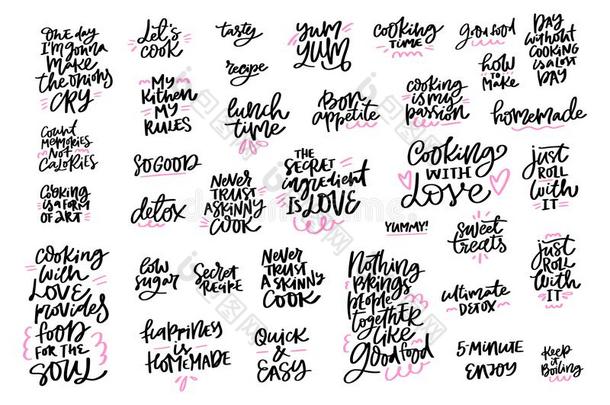 one day
I'm gonna
make
the onions
CRY
Let's
cook
tasty
yum
YUM
cooking
TIME
good food
DAY
WITHOUT
COOKING
IS A LOST
DAY
MY
Kitchen
MY
RULES
recipe
lunch
time
Bon
appetite
cooking
is my
passion
how
to
make
homemade
Count
MEMORIES
NOT
CALORIES
SO GOOD
NEVER
TRUST
A SKINNY
COOK
THE
SECRET
ingredient
IS LOVE
Cooking
WITH
Love
just
ROLL
WITH
IT
Cooking
IS A FORM
OF ART
detox
YUMMY!
sweet
treats
cooking
with
LOVE
provides
FOOD
FOR THE
SOUL
low
sugar
Secret
Recipe
NEVER
TRUST
A SKINNY
COOK
Nothing
BRINGS
people
together
like
good food
just
ROLL
With
IT
ultimate
DETOX
happiney
is
HOMEMADE
QUICK
&
EASY
5-MINUTE
ENJOY
Keep
it
Boiling